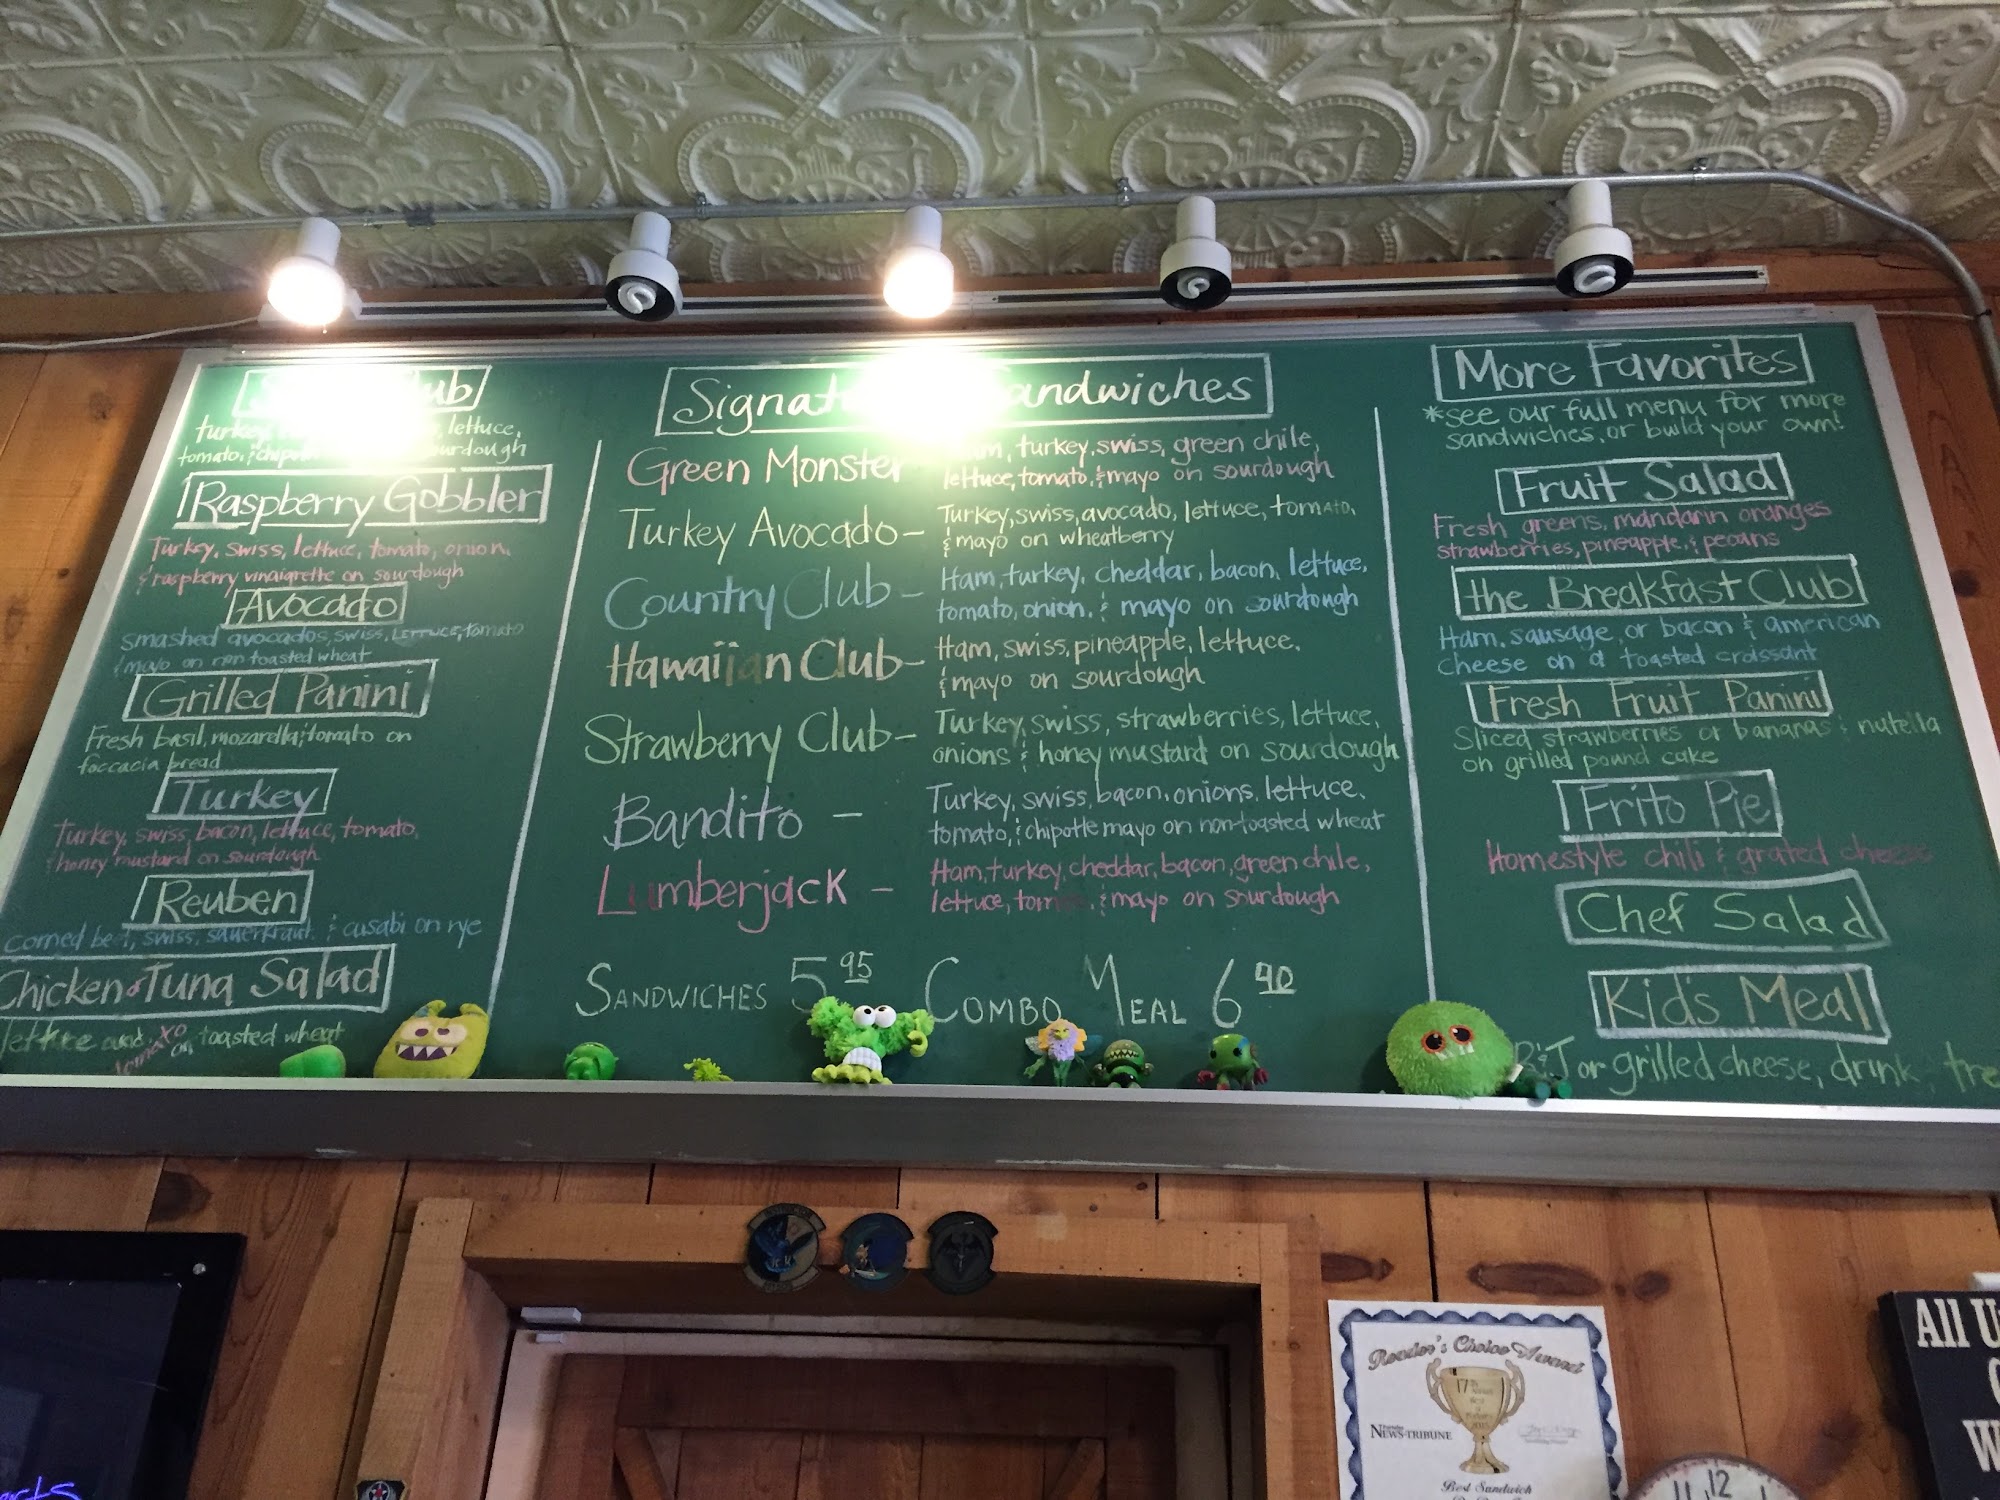 Club
turkey, lettuce,
tomato, & chipotle sourdough
Raspberry Gobbler
Turkey, swiss, lettuce, tomato, onion,
& raspberry vinaigrette on sourdough
Avocado
smashed avocados, swiss, Lettuce, tomato
& mayo on non toasted wheat
Grilled Panini
Fresh basil, mozarella, & tomato on
foccacia bread
Turkey
Turkey, swiss, bacon, lettuce, tomato,
& honey mustard on sourdough
Reuben
corned beef, swiss, sauerkraut, & cusabi on rye
Chicken or Tuna Salad
lettuce and tomato on toasted wheat
XO
Signature Sandwiches
Green Monster
Ham, turkey, swiss, green chile,
lettuce, tomato, & mayo on sourdough
Turkey Avocado -
Turkey, swiss, avocado, lettuce, tomato,
& mayo on wheatberry
Country Club -
Ham, turkey, cheddar, bacon, lettuce,
tomato, onion, & mayo on sourdough
Hawaiian Club -
Ham, swiss, pineapple, lettuce,
& mayo on sourdough
Strawberry Club -
Turkey, swiss, strawberries, lettuce,
onions & honey mustard on sourdough
Bandito -
Turkey, swiss, bacon, onions, lettuce,
tomato, & chipotle mayo on non-toasted wheat
Lumberjack -
Ham, turkey, cheddar, bacon, green chile,
lettuce, tom & mayo on sourdough
Sandwiches 5.95 Combo Meal 6.40
More Favorites
*see our full menu for more
sandwiches, or build your own!
Fruit Salad
Fresh greens, mandarin oranges
strawberries, pineapple, & pecans
the Breakfast Club
Ham, sausage, or bacon & american
cheese on a toasted croissant
Fresh Fruit Panini
Sliced strawberries or bananas & nutella
on grilled pound cake
Frito Pie
Homestyle chili & grated cheese
Chef Salad
Kid's Meal
B&J or grilled cheese, drink, tre
Reader's Choice Award
17th
Best
of
2015
NEWS-TRIBUNE
Best Sandwich
All U
W
12